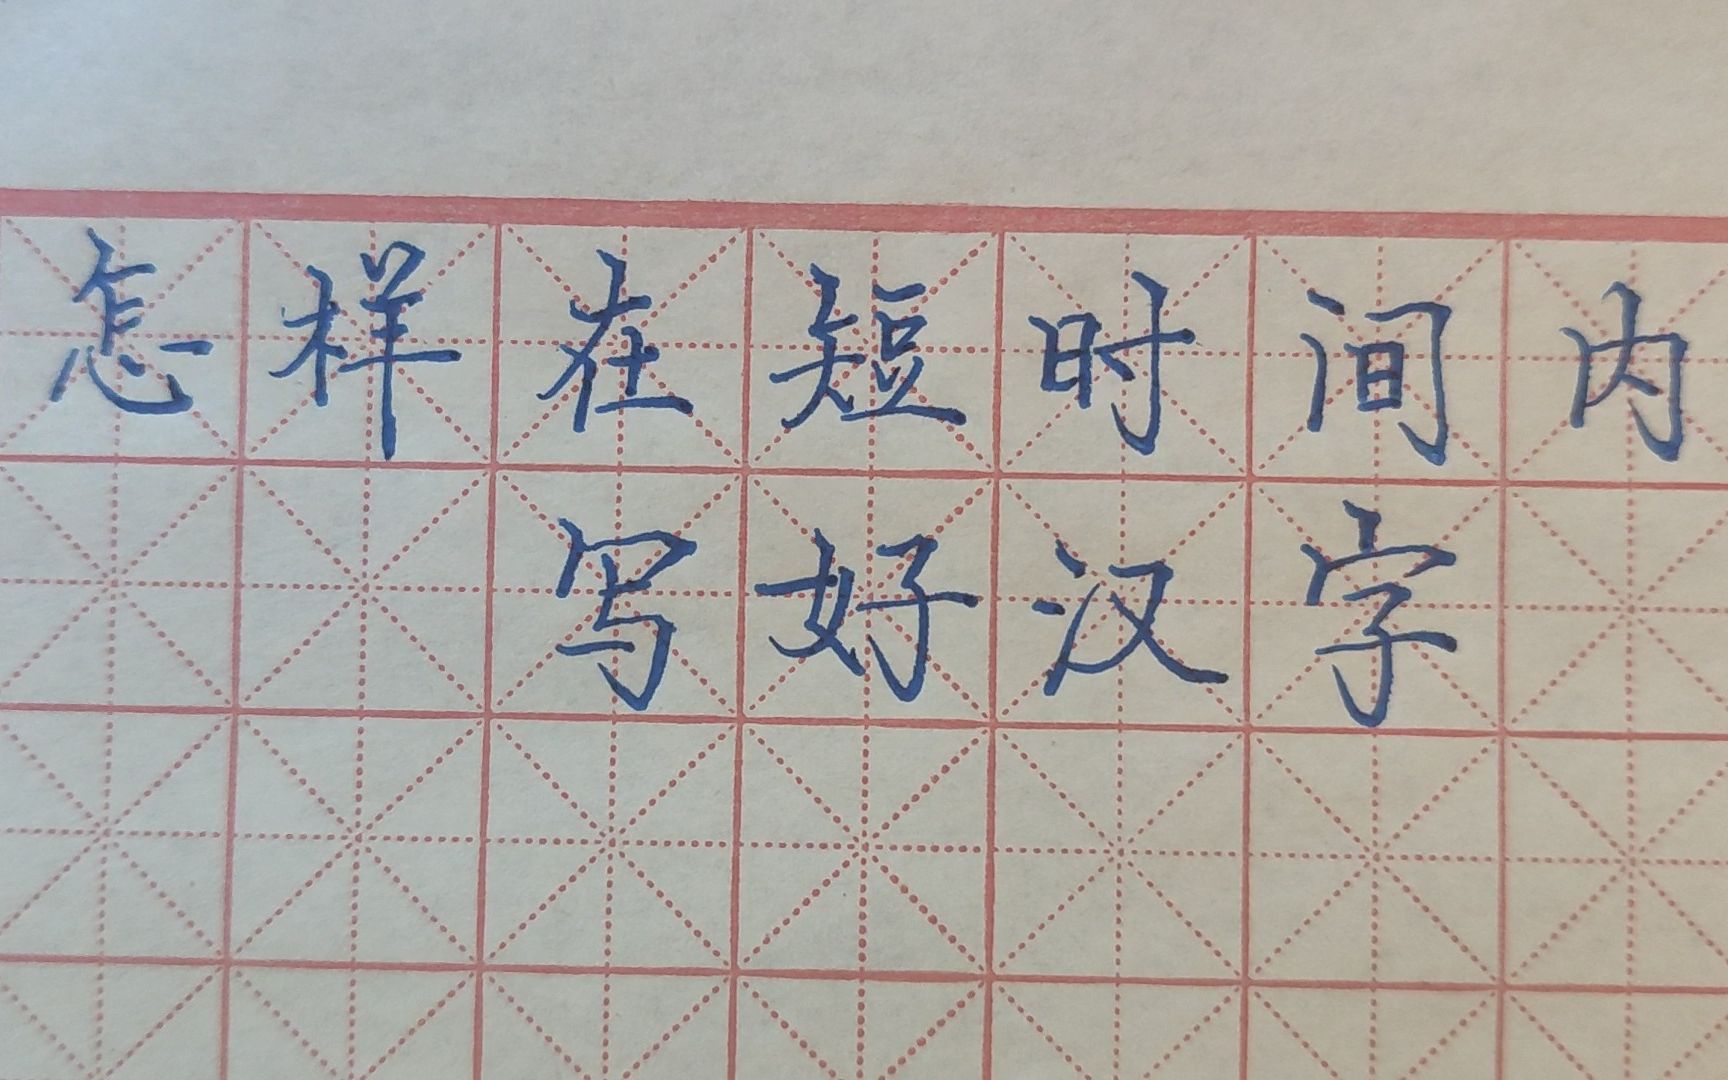 怎样在短时间内
写好汉字